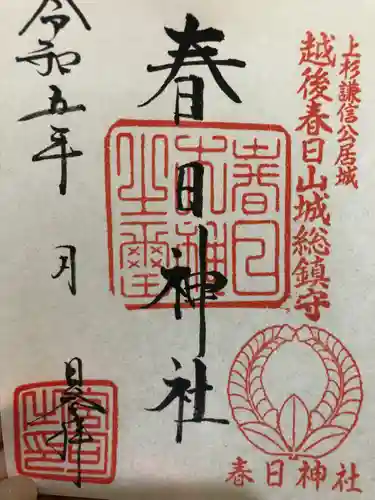 上杉謙信公居城
越後春日山城総鎮守
春日神社
春日神社
令和五年 月 日参拝